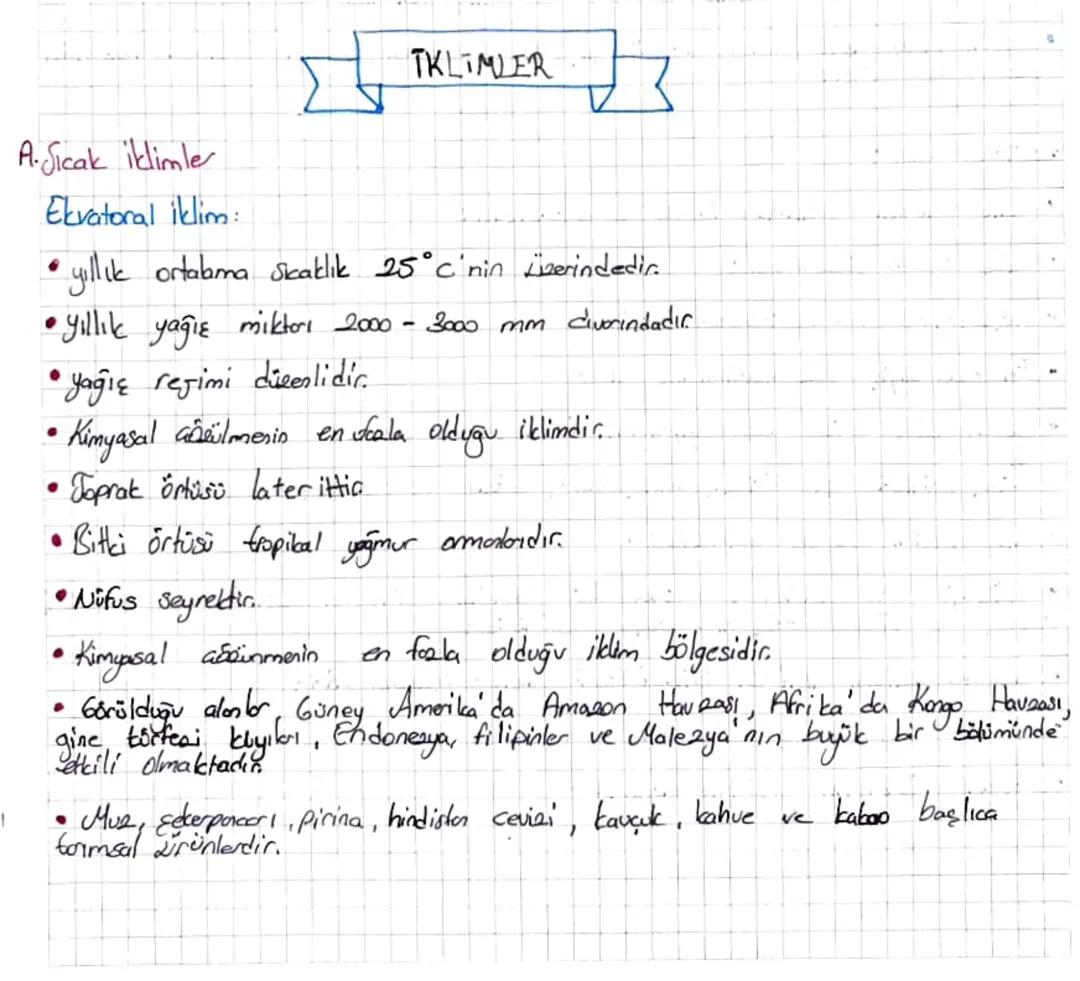 İKLİMLER
A. Sıcak iklimler
Ekvatoral iklim:
• yıllık ortalama sıcaklık 25°c'nin üzerindedir.
• Yıllık yağış miktarı 2000 - 3000 mm civarındadır.
• yağış rejimi düzenlidir.
• Kimyasal çözülmenin en fazla olduğu iklimdir.
• Toprak örtüsü laterittir.
• Bitki örtüsü tropikal yağmur ormanlarıdır.
• Nüfus seyrektir.
• Kimyasal aşınmanın en fazla olduğu iklim bölgesidir.
• Görüldüğü alanlar, Güney Amerika'da Amazon Havzası, Afrika'da Kongo Havzası,
gine körfezi kıyıları, Endonezya, filipinler ve Malezya'nın büyük bir bölümünde
etkili olmaktadır.
• Muz, şekerpancarı, pirinç, hindistan cevizi, kauçuk, kahve ve kakao başlıca
tarımsal ürünlerdir.